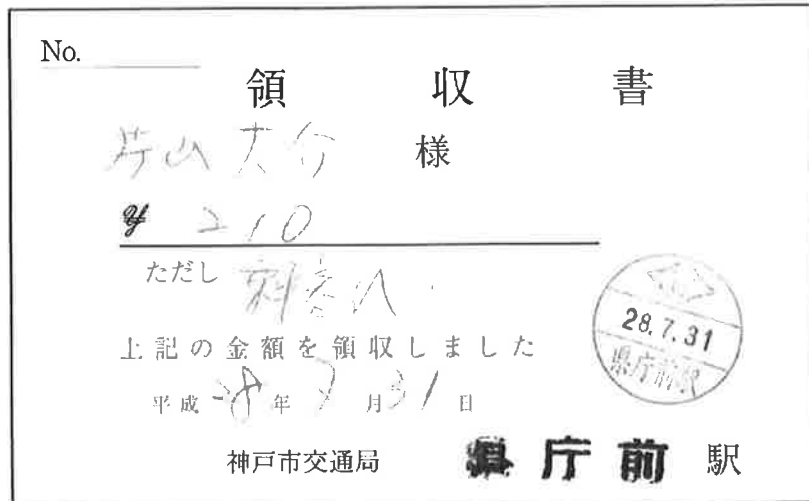 No.
領収書
片山大介 様
¥ 210
ただし
上記の金額を領収しました
平成 28 年 7 月 31 日
28.7.31
県庁前駅
神戸市交通局 県庁前駅